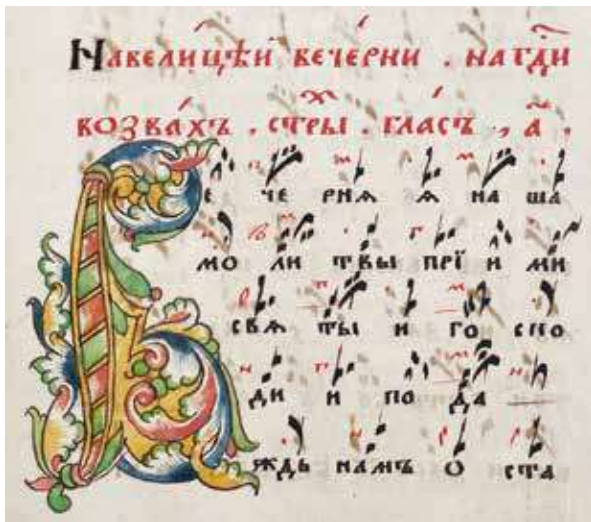 Навелицѣй вечерни . нагд҃и
возва́хъ . ст҃ры . гласъ . а҃ .
Ве че рнѧ ѧ на ша
мо ли твы прї и ми
свѧ ты и го спо
ди и по да
ждь намъ о ста